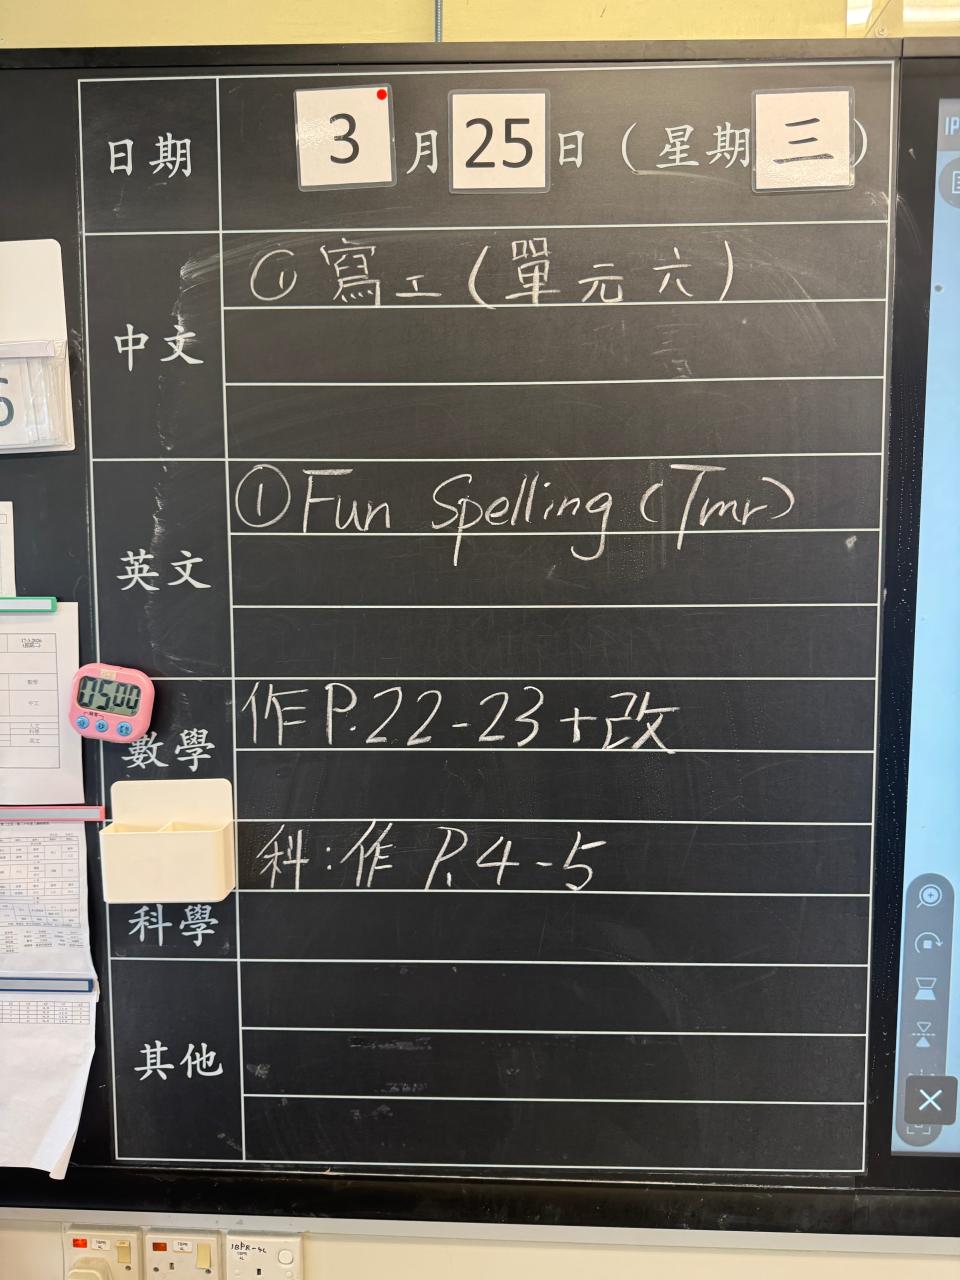 日期 3 月 25 日 ( 星期 三 )
中文
① 寫工 (單元六)
英文
① Fun Spelling (Tmr)
數學
作 P.22-23 + 改
科學
科:作 P.4-5
其他
0500
IP